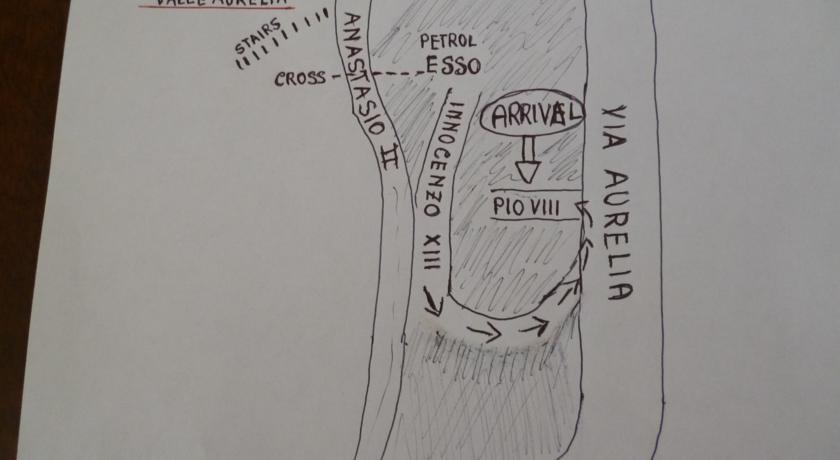 VALLE AURELIA
STAIRS
CROSS
ANASTASIO II
PETROL
ESSO
INNOCENZO XIII
ARRIVAL
PIO VIII
VIA AURELIA